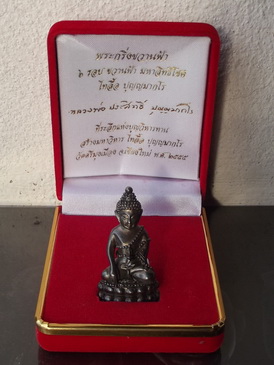 พระกริ่งขวานฟ้า
๖ รอบ ขวานฟ้า มหาสิทธิโชติ
ไทลื้อ ปุญญมากโร
หลวงพ่อ ประสิทธิ์ ปุญญมากโร
ที่ระลึกแห่งบุญวิหารทาน
สร้างมหาวิหาร ไทลื้อ ปุญญมากโร
จ.เชียงใหม่ พ.ศ. ๒๕๕๔